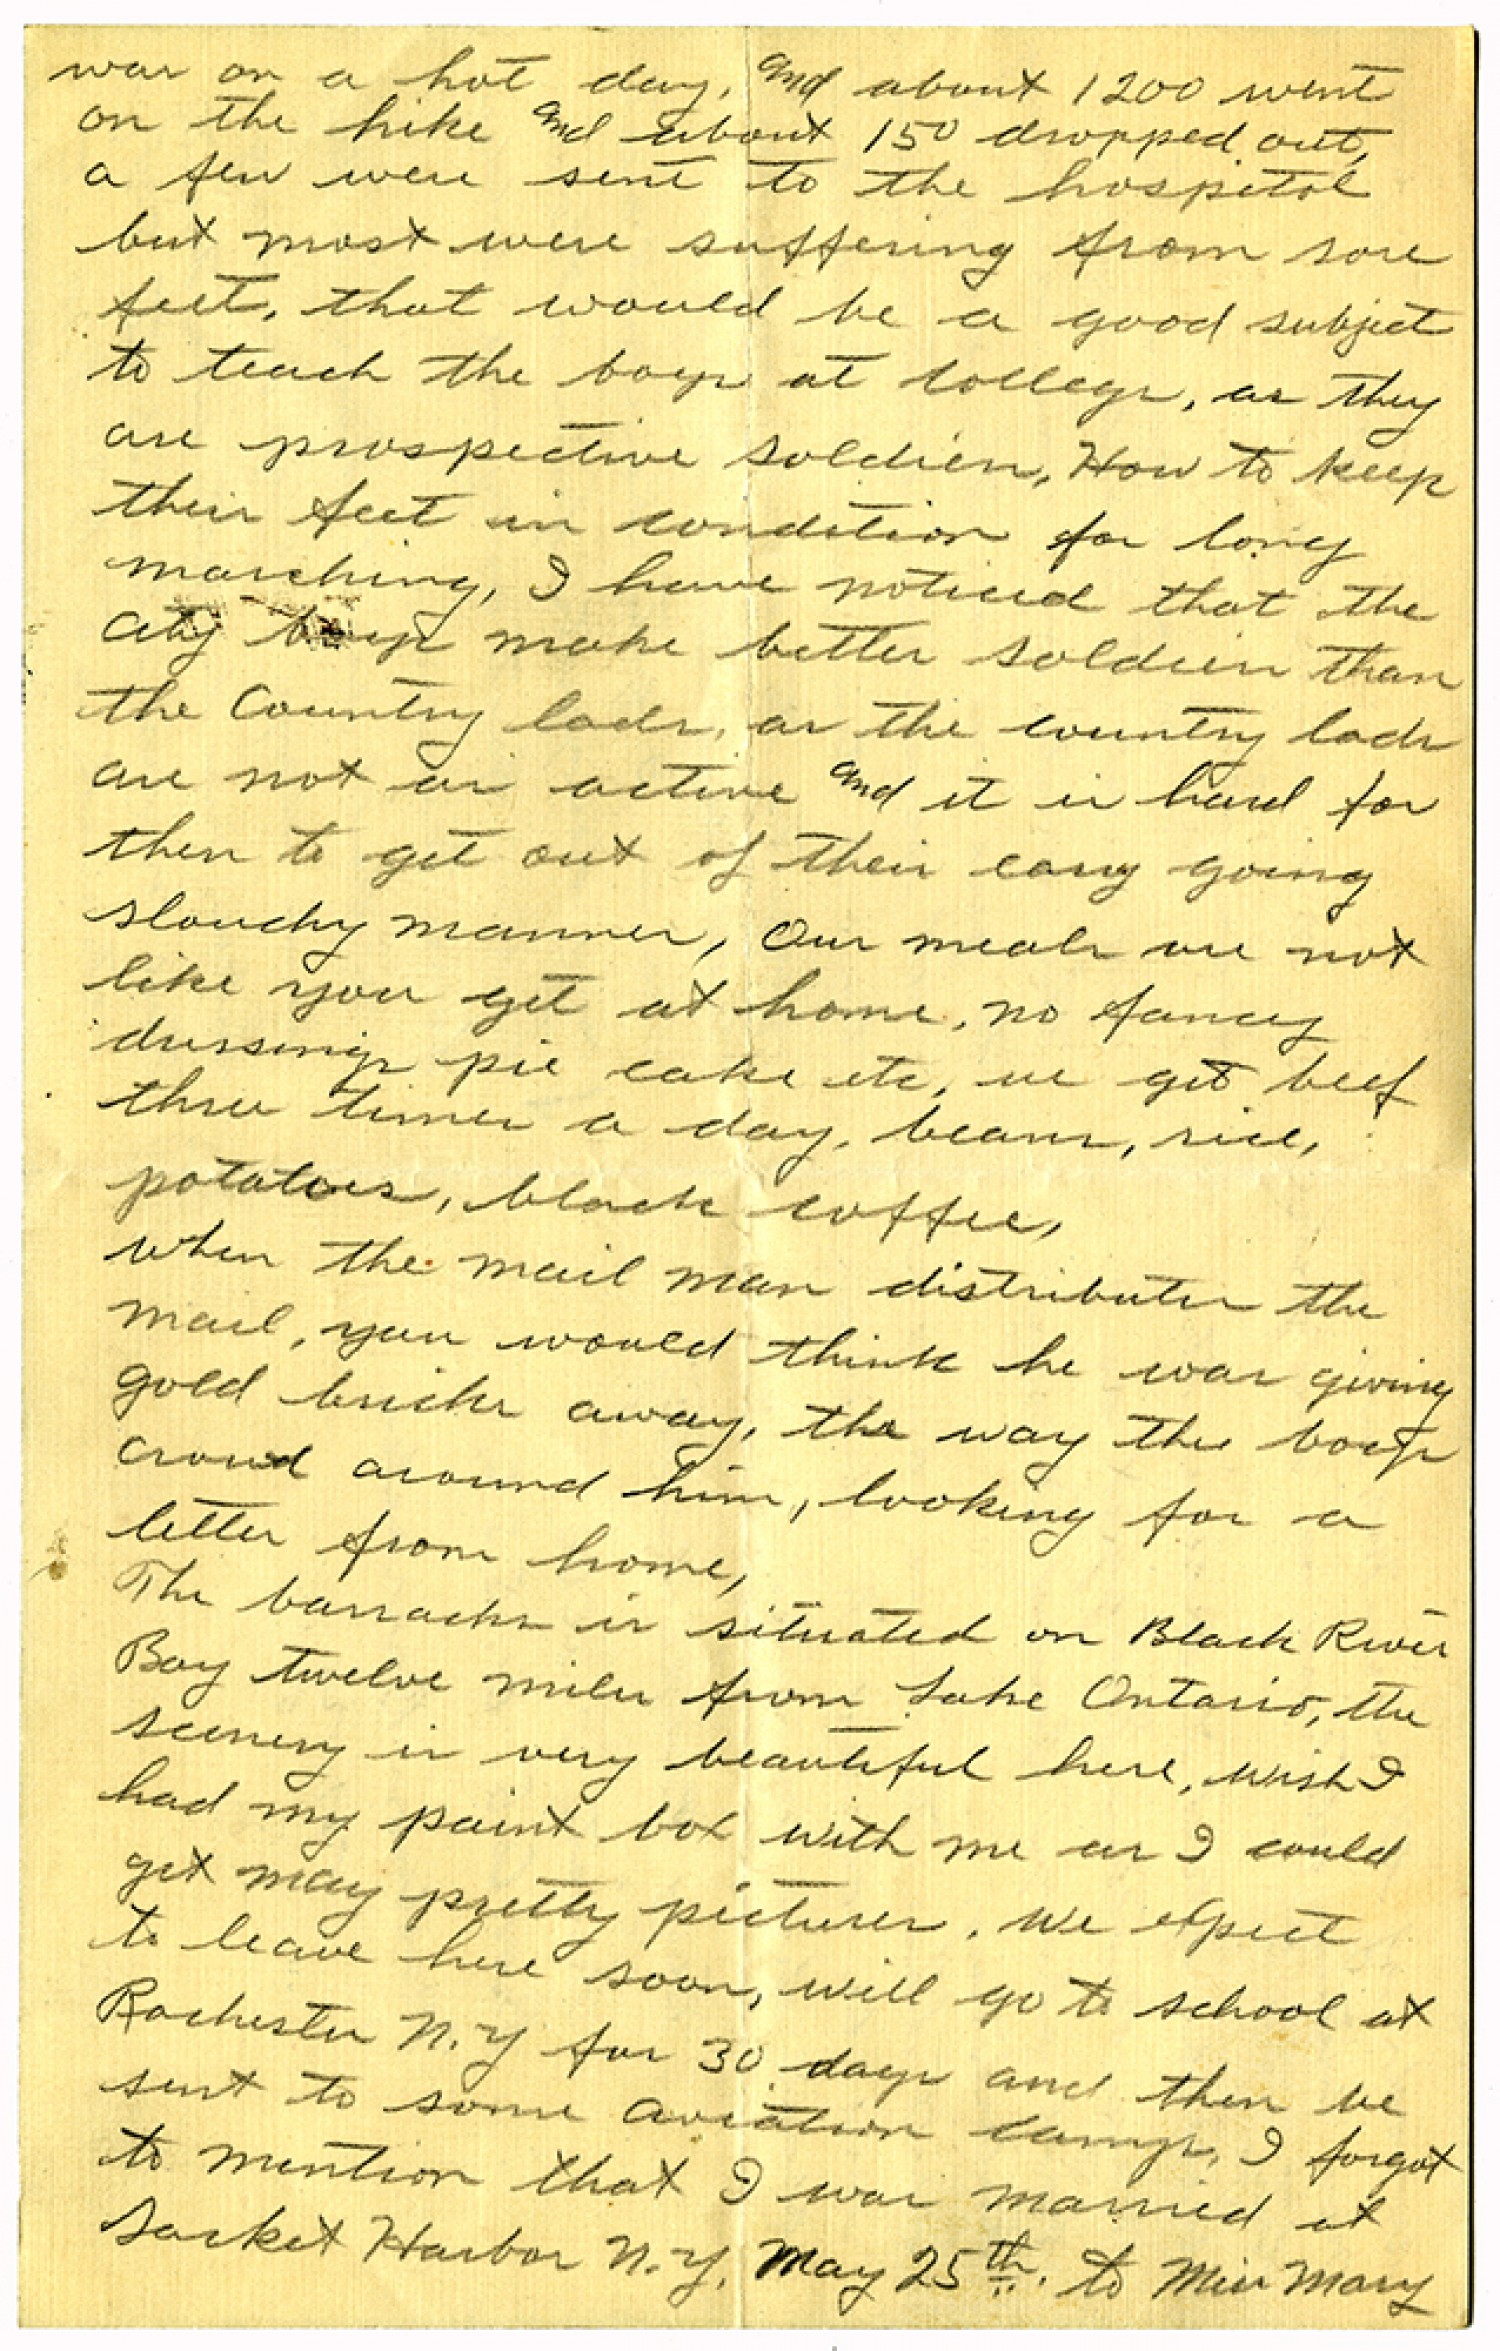 was on a hot day, and about 1200 went
on the hike and about 150 dropped out,
a few were sent to the hospital
but most were suffering from sore
feet, that would be a good subject
to teach the boys at College, as they
are prospective soldiers, How to keep
their feet in condition for long
marching, I have noticed that the
city boys make better soldiers than
the Country lads, as the country lads
are not as active and it is hard for
then to get out of their easy going
slouchy manner, Our meals are not
like you get at home, no fancy
dressings pie cake etc, we get beef
three times a day, beans, rice,
potatoes, black coffee,
when the mail man distributes the
mail, you would think he was giving
gold bricks away, the way the boys
crowd around him, looking for a
letter from home,
The barracks is situated on Black River
Bay twelve miles from Lake Ontario, the
scenery is very beautiful here, wish I
had my paint box with me as I could
get may pretty pictures, we expect
to leave here soon, will go to school at
Rochester N.Y for 30 days and then be
sent to some aviation camp, I forgot
to mention that I was married at
Sacket Harbor N.Y, May 25th. to Miss Mary